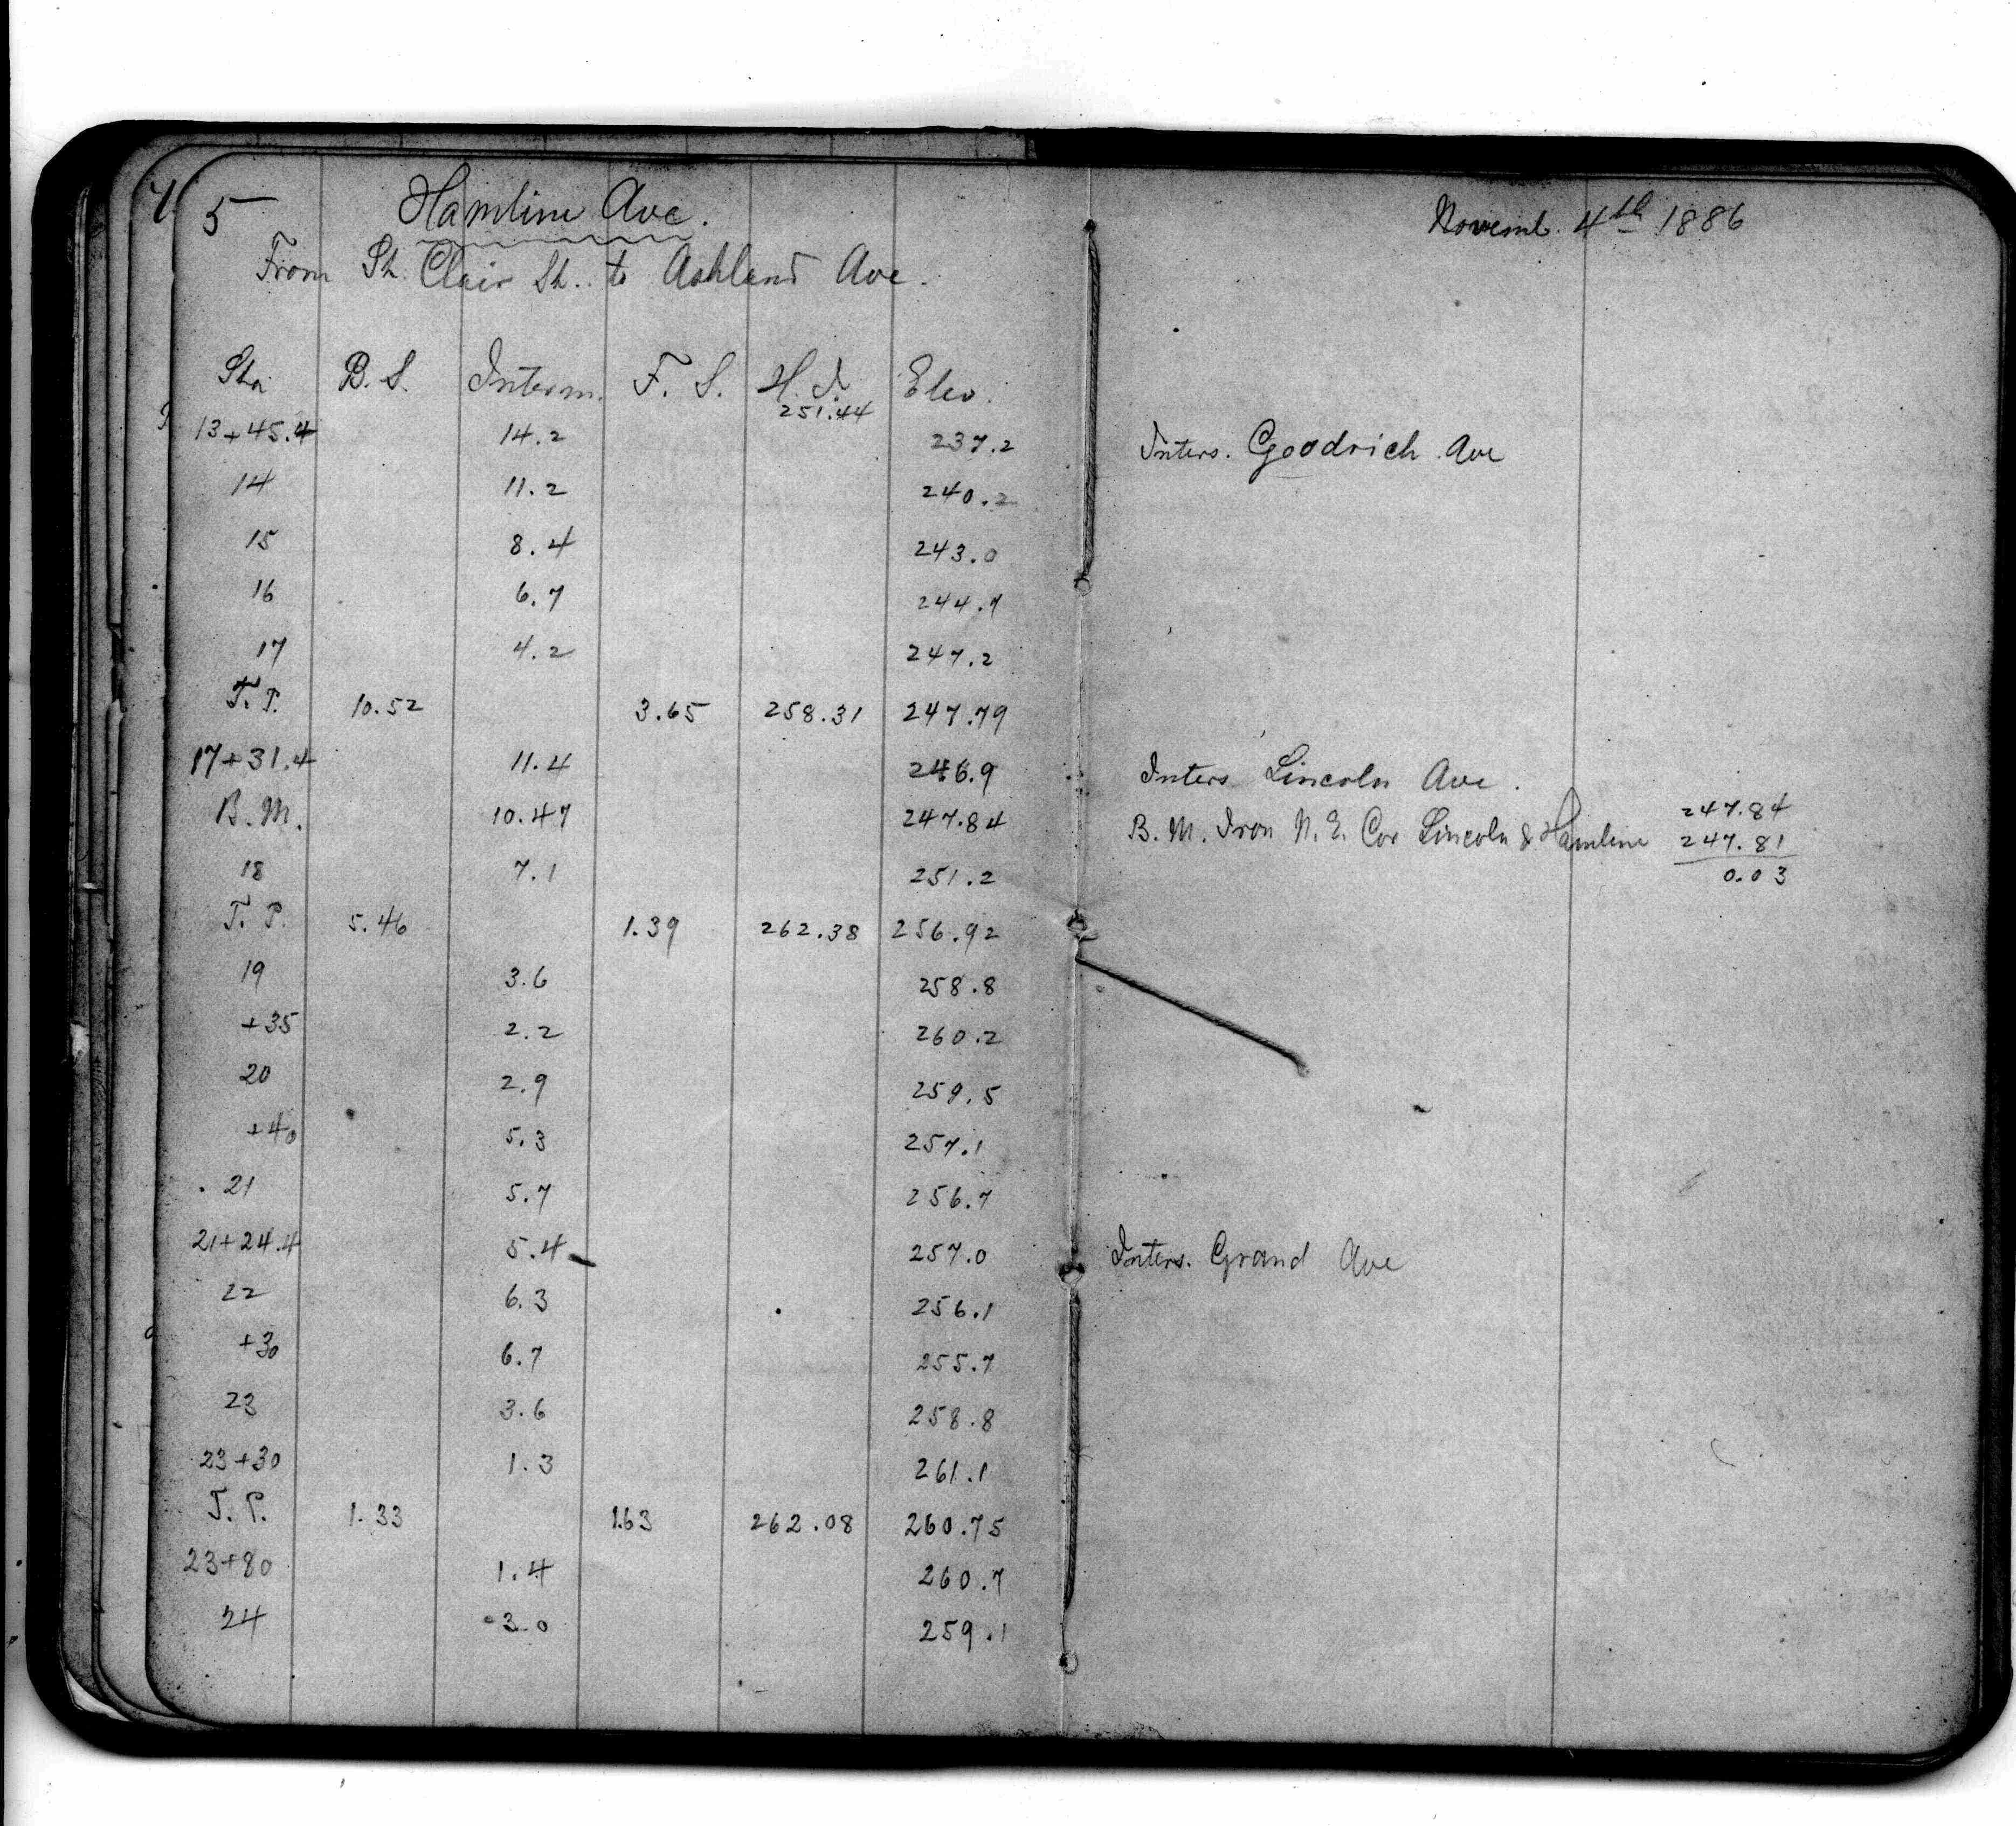 5 Hamline Ave. Novemb. 4th 1886
From St. Clair St. to Ashland Ave.
Sta B. S. Interm. F. S. H. I. Elev.
251.44
13+45.4 14.2 237.2 Inters. Goodrich Ave
14 11.2 240.2
15 8.4 243.0
16 6.7 244.7
17 4.2 247.2
T. P. 10.52 3.65 258.31 247.79
17+31.4 11.4 246.9 Inters Lincoln Ave.
B. M. 10.47 247.84 B. M. Iron N. E. Cor Lincoln & Hamline 247.84
247.81
18 7.1 251.2 0.03
T. P. 5.46 1.39 262.38 256.92
19 3.6 258.8
+35 2.2 260.2
20 2.9 259.5
+40 5.3 257.1
21 5.7 256.7
21+24.4 5.4 257.0 Inters. Grand Ave
22 6.3 256.1
+30 6.7 255.7
23 3.6 258.8
23+30 1.3 261.1
T. P. 1.33 1.63 262.08 260.75
23+80 1.4 260.7
24 3.0 259.1